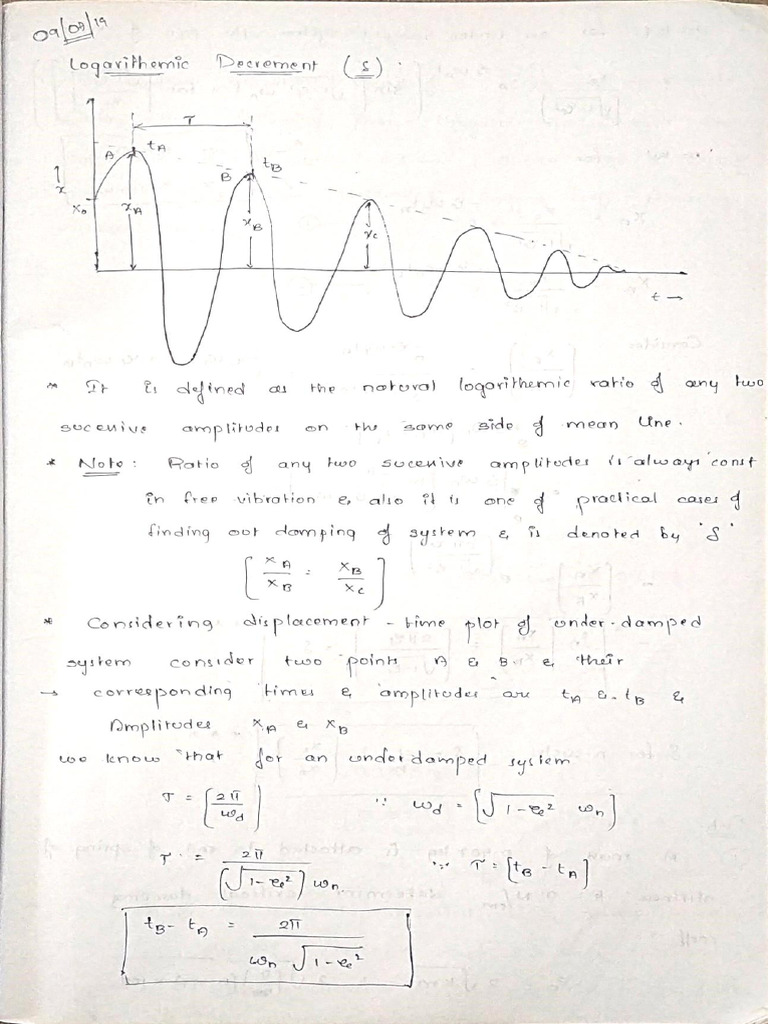 09/09/19
Logarithemic Decrement (δ).
T
A
tA
B
tB
↑
x
X0
XA
XB
XC
t →
* It is defined as the natural logarithemic ratio of any two
sucessive amplitudes on the same side of mean line.
* Note: Ratio of any two sucessive amplitudes is always const
in free vibration & also it is one of practical cases of
finding out damping of system & is denoted by 'δ'
[XA/XB = XB/XC]
* Considering displacement-time plot of under-damped
system consider two points A & B & their
→ corresponding times & amplitudes are tA & tB &
Amplitudes XA & XB
we know that for an underdamped system
T = [2π/ωd] ∵ ωd = [√1-ξ² ωn]
T = 2π/(√1-ξ²) ωn ∵ T = [tB - tA]
tB - tA = 2π/ωn √1-ξ²